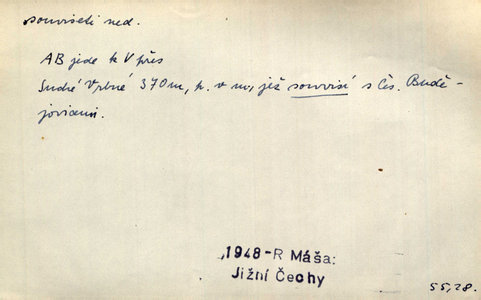 souviseti ned.
AB jede k V přes
Suché Vrbné 370m, k. v m, jež souvisí s Čes. Budě-
jovicemi.
1948-R Máša:
Jižní Čechy
55,28.